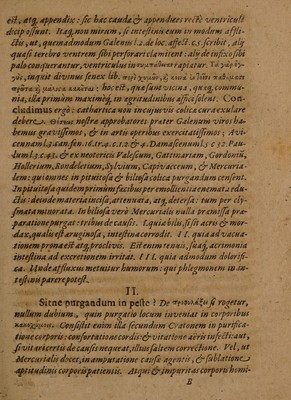 est, atq; appendix: sic hæc cauda & appendices rectè ventriculi
dici possunt. Itaq; non mirum, si intestinæ eum in modum afflicti,
ut, quemadmodum Galenus l.2. de loc. affect. c.5. scribit, aliqui
quasi terebra ventrem sibi perforari clamitent: alij de infixo sibi
palo conquerantur, ventriculus in
inquit divinus senex lib.
hoc est, quæ sunt vicina, quæq; communia,
illa primùm maximè, in ægritudinibus afficisolent. Concludimus
ergò: cathartica non incujusvis colica cura exulare
debere. nostræ approbatores præter Galenum viros habemus
gravissimos, & in artis operibus exercitatissimos; Avicennam
l.3. aan. fen. 16. tr. 4. c. 12. & 4. Damascenum l.5. c. 52. Paulum
l.3. c. 43. & ex neotericis Valescum, Gattinariam, Gordoniũ,
Hollerium, Rondeletium, Sylvium, Capivaccium, & Mercurialem:
qui omnes in pituitosa & biliosa colica purgandum censent.
In pituitosa quidem primùm fæcibus per emollientia enemata eductis:
deinde materia incisa, attenuata, atq; detersa: tum per clysmata
minorata. In biliosa verò Mercurialis nulla præmissa præparatione
purgat: tribus de causis. I. quia bilis, si sit acris & mordax,
qualis est æruginosa, intestina corrodit. II. quia ad vacuationem
prona est atq; proclivis. Est enim tenuis, suaq; acrimonia
intestina ad excretionem irritat. III. quia ad modum dolorifica.
Unde affluxus metuitur humorum: qui phlegmonem in intestinis
parere potest.
II.
Sitne purgandum in peste? De si rogetur,
nullum dubium, quin purgatio locum inveniat in corporibus
Consistit enim illa secundum Cratonem in purificatione
corporis: confortatione cordis & vitatione aëris infecti: aut,
si vitari certis de causis nequeat, illius saltem correctione. Vel, ut
Mercurialis docet, in amputatione causæ agentis, & sublatione
aptitudinis corporis patientis. Atqui & impuritas corporis homi-
B